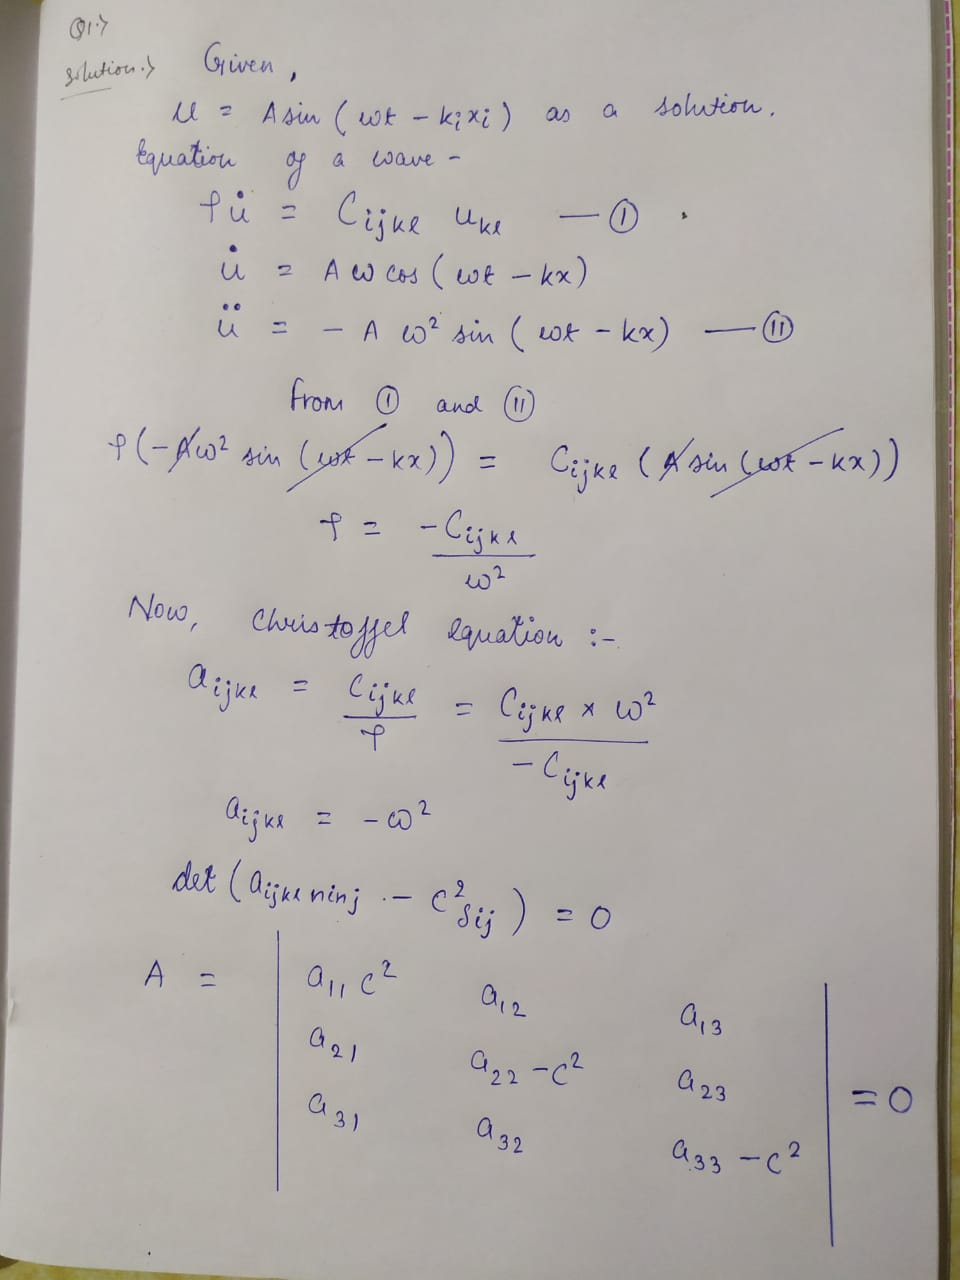 Q1.>
Solution.> Given,
u = A sin (ωt - kixi) as a solution.
Equation of a wave -
ρü = Cijkl ukl — I
u̇ = A ω cos (ωt - kx)
ü = - A ω² sin (ωt - kx) — II
from I and II
ρ(-Aω² sin (ωt - kx)) = Cijkl (A sin (ωt - kx))
ρ = -Cijkl / ω²
Now, Christoffel equation :-
aijkl = Cijkl / ρ = Cijkl × ω² / - Cijkl
aijkl = - ω²
det (aijkl ninj - c²δij) = 0
A = | a11 c² a12 a13 |
| a21 a22 - c² a23 | = 0
| a31 a32 a33 - c² |